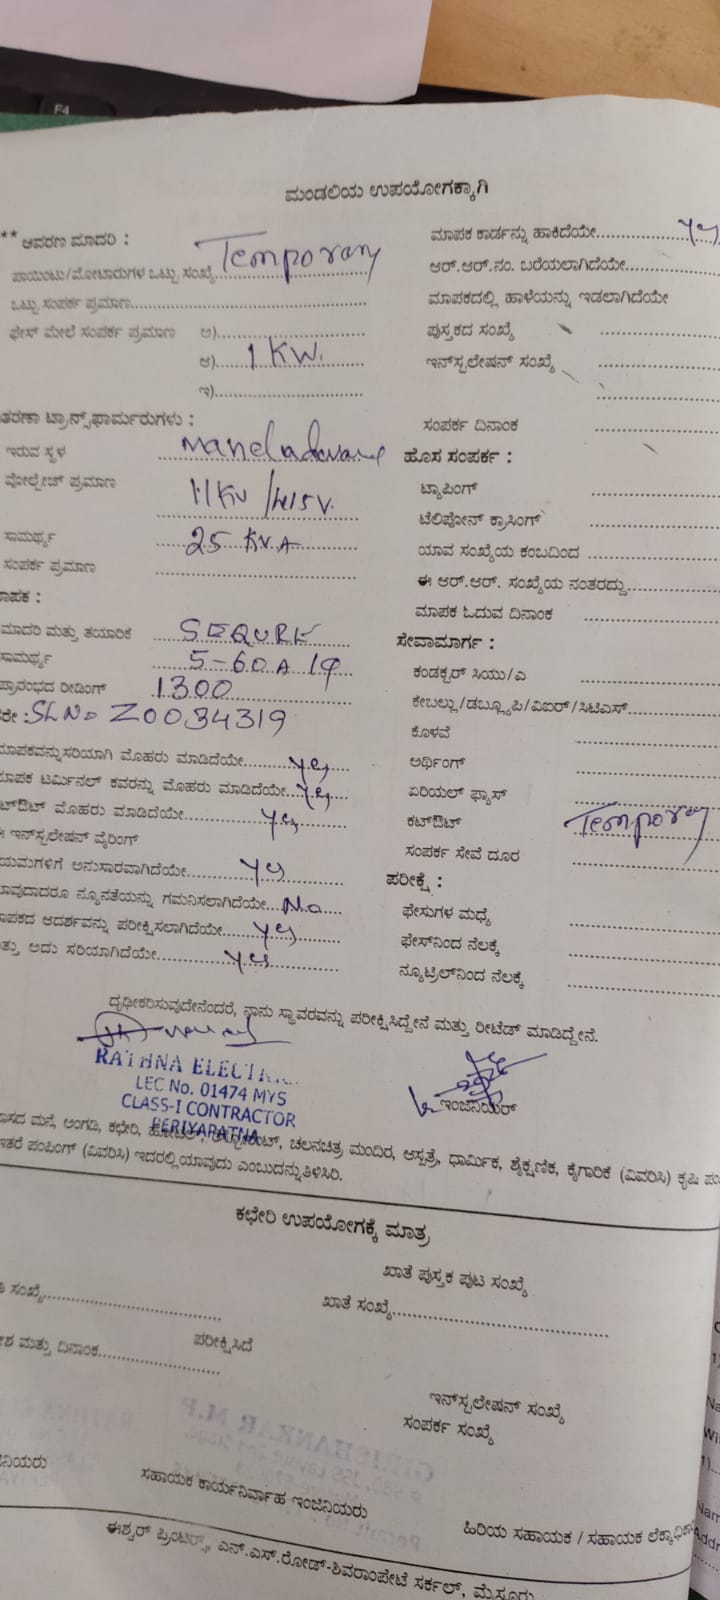 F4
ಮಂಡಲಿಯ ಉಪಯೋಗಕ್ಕಾಗಿ
** ಆವರಣ ಮಾದರಿ :
Temporary
ಪಾಯಿಂಟು/ಮೋಟಾರುಗಳ ಒಟ್ಟು ಸಂಖ್ಯೆ
ಒಟ್ಟು ಸಂಪರ್ಕ ಪ್ರಮಾಣ
ಫೇಸ್ ಮೇಲೆ ಸಂಪರ್ಕ ಪ್ರಮಾಣ ಅ)
ಆ) 1 KW.
ಇ)
ತರಣಾ ಟ್ರಾನ್ಸ್‌ಫಾರ್ಮರುಗಳು :
ಇರುವ ಸ್ಥಳ
ವೋಲ್ಟೇಜ್ ಪ್ರಮಾಣ 11KV/415V.
ಸಾಮರ್ಥ್ಯ 25 KVA
ಸಂಪರ್ಕ ಪ್ರಮಾಣ
ಾಪಕ :
ಮಾದರಿ ಮತ್ತು ತಯಾರಿಕೆ SEQURE
ಸಾಮರ್ಥ್ಯ 5-60A 1φ
ಪ್ರಾರಂಭದ ರೀಡಿಂಗ್ 1300
ರೇ : SL No Z0034319
ಮಾಪಕವನ್ನು ಸರಿಯಾಗಿ ಮೊಹರು ಮಾಡಿದೆಯೇ yes
ಮಾಪಕ ಟರ್ಮಿನಲ್ ಕವರನ್ನು ಮೊಹರು ಮಾಡಿದೆಯೇ yes
ಕಟ್‌ಔಟ್ ಮೊಹರು ಮಾಡಿದೆಯೇ yes
ಇನ್‌ಸ್ಟಲೇಷನ್ ವೈರಿಂಗ್
ಯಮಗಳಿಗೆ ಅನುಸಾರವಾಗಿದೆಯೇ yes
ಯಾವುದಾದರೂ ನ್ಯೂನತೆಯನ್ನು ಗಮನಿಸಲಾಗಿದೆಯೇ No
ಮಾಪಕದ ಆದರ್ಶವನ್ನು ಪರೀಕ್ಷಿಸಲಾಗಿದೆಯೇ yes
ತ್ತು ಅದು ಸರಿಯಾಗಿದೆಯೇ yes
ಮಾಪಕ ಕಾರ್ಡನ್ನು ಹಾಕಿದೆಯೇ yes
ಆರ್.ಆರ್.ನಂ. ಬರೆಯಲಾಗಿದೆಯೇ
ಮಾಪಕದಲ್ಲಿ ಹಾಳೆಯನ್ನು ಇಡಲಾಗಿದೆಯೇ
ಪುಸ್ತಕದ ಸಂಖ್ಯೆ
ಇನ್‌ಸ್ಟಲೇಷನ್ ಸಂಖ್ಯೆ
ಸಂಪರ್ಕ ದಿನಾಂಕ
ಹೊಸ ಸಂಪರ್ಕ :
ಟ್ಯಾಪಿಂಗ್
ಟೆಲಿಪೋನ್ ಕ್ರಾಸಿಂಗ್
ಯಾವ ಸಂಖ್ಯೆಯ ಕಂಬದಿಂದ
ಈ ಆರ್.ಆರ್. ಸಂಖ್ಯೆಯ ನಂತರದ್ದು
ಮಾಪಕ ಓದುವ ದಿನಾಂಕ
ಸೇವಾಮಾರ್ಗ :
ಕಂಡಕ್ಟರ್ ಸಿಯು/ಎ
ಕೇಬಲ್ಲು/ಡಬ್ಲ್ಯೂಪಿ/ವಿಐಆರ್/ಸಿಟಿಎಸ್
ಕೊಳವೆ
ಅರ್ಥಿಂಗ್
ಏರಿಯಲ್ ಫ್ಯಾಸ್
ಕಟ್‌ಔಟ್ Temporary
ಸಂಪರ್ಕ ಸೇವೆ ದೂರ
ಪರೀಕ್ಷೆ :
ಫೇಸುಗಳ ಮಧ್ಯೆ
ಫೇಸ್‌ನಿಂದ ನೆಲಕ್ಕೆ
ನ್ಯೂಟ್ರಿಲ್‌ನಿಂದ ನೆಲಕ್ಕೆ
ದೃಢೀಕರಿಸುವುದೇನೆಂದರೆ, ನಾನು ಸ್ಥಾವರವನ್ನು ಪರೀಕ್ಷಿಸಿದ್ದೇನೆ ಮತ್ತು ರೀಟೆಡ್ ಮಾಡಿದ್ದೇನೆ.
RATHNA ELECTR
LEC No. 01474 MYS
CLASS-I CONTRACTOR
PERIYAPATNA
ಇಂಜಿನಿಯರ್
ಾಸದ ಮನೆ, ಅಂಗಡಿ, ಕಛೇರಿ, ಹೋಟೆಲ್, ಚಲನಚಿತ್ರ ಮಂದಿರ, ಆಸ್ಪತ್ರೆ, ಧಾರ್ಮಿಕ, ಶೈಕ್ಷಣಿಕ, ಕೈಗಾರಿಕೆ (ವಿವರಿಸಿ) ಕೃಷಿ ಪಂ
ಇತರೆ ಪಂಪಿಂಗ್ (ವಿವರಿಸಿ) ಇದರಲ್ಲಿ ಯಾವುದು ಎಂಬುದನ್ನು ತಿಳಿಸಿರಿ.
ಕಛೇರಿ ಉಪಯೋಗಕ್ಕೆ ಮಾತ್ರ
ಖಾತೆ ಪುಸ್ತಕ ಪುಟ ಸಂಖ್ಯೆ
ಸಂಖ್ಯೆ
ಖಾತೆ ಸಂಖ್ಯೆ
ಪರೀಕ್ಷಿಸಿದೆ
ಶ ಮತ್ತು ದಿನಾಂಕ
ಇನ್‌ಸ್ಟಲೇಷನ್ ಸಂಖ್ಯೆ
ಸಂಪರ್ಕ ಸಂಖ್ಯೆ
ನಿಯರು
ಸಹಾಯಕ ಕಾರ್ಯನಿರ್ವಾಹ ಇಂಜಿನಿಯರು
ಹಿರಿಯ ಸಹಾಯಕ / ಸಹಾಯಕ ಲೆಕ್ಕಾಧಿಕಾರಿ
ಈಶ್ವರ್ ಪ್ರಿಂಟರ್ಸ್, ಎನ್.ಎಸ್.ರೋಡ್-ಶಿವರಾಂಪೇಟೆ ಸರ್ಕಲ್, ಮೈಸೂರು